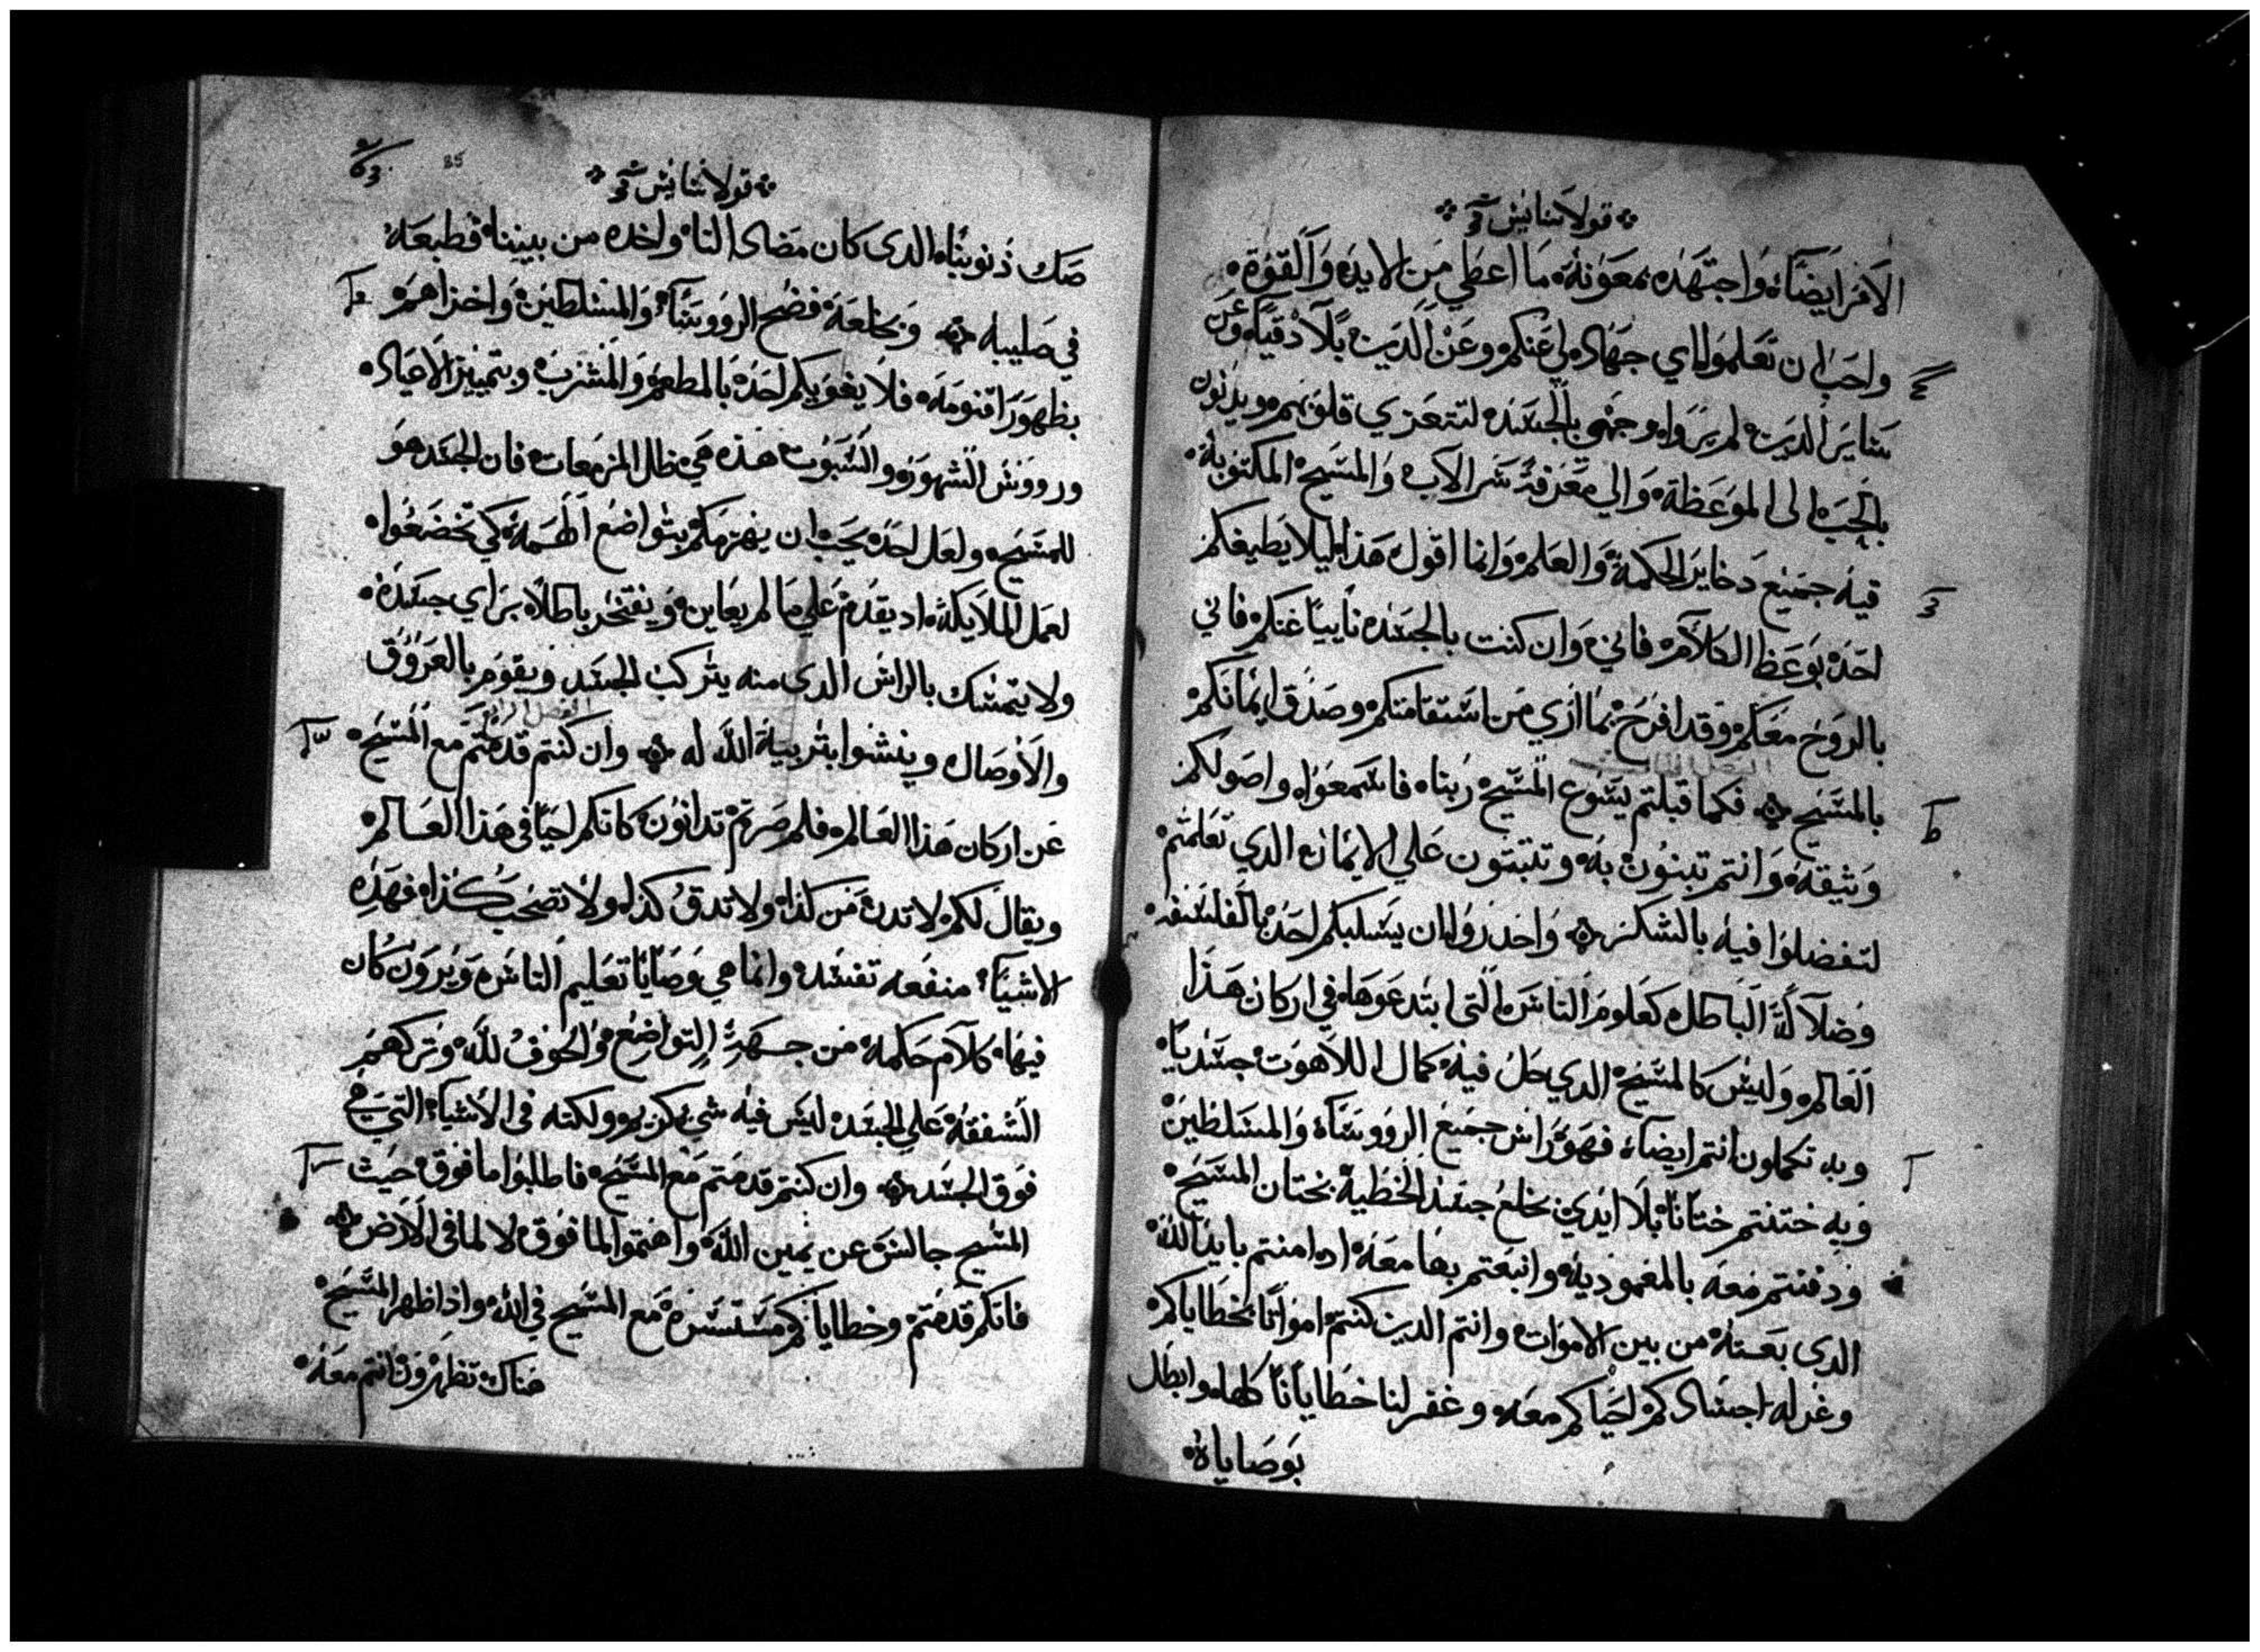 قولاسايس
الامر ايضاً واجتهد بمعونة ما اعطي من الايد والقوة
واحب ان تعلموا اي جهاد لي عنكم وعن الدين بلادقيا وعن
ساير الدين لم يروا وجهي بالجسد لتتعزي قلوبهم ويدنون
بالحب الى الموعظة والي معرفة سر الاب والمسيح المكتوبة
فيه جميع دخاير الحكمة والعلم وانما اقول هذا ليلا يطيغكم
احد بوعظ الكلام فاني وان كنت بالجسد نايياً عنكم فاني
بالروح معكم وقد افرح بما ازي من استقامتكم وصدق ايمانكم
بالمسيح فكما قبلتم يسوع المسيح ربنا فاسمعوا واصولكم
وثيقة وانتم تبنون به وتثبتون علي الايمان الدي تعلمتم
لتفضلوا فيه بالشكر واحدروا ان يسلبكم احد بالفلسفه
وضلالة الباطل كعلوم الناس التى ابتدعوها في اركان هذا
العالم وليس كالمسيح الدي حل فيه كمال اللاهوت جسديا
وبه تكملون انتم ايضاً فهو راس جميع الروسا والمسلطين
وبه ختنتم ختاناً بلا ايدي بخلع جسد الخطية بختان المسيح
ودفنتم معه بالمعمودية وانبعتم بها معه اد امنتم بايد الله
الدى بعته من بين الاموات وانتم الدين كنتم امواتاً بخطاياكم
وغرله اجسادكم احياكم معه وغفر لنا خطايانا كلها وابطل
بوصاياه
قولاسايس
85
صك ذنوبنا الدى كان مضاد النا واخده من بيننا فطبعه
في صليبه وبخلعه فضح الرووسا والمسلطين واخزاهم
بظهور اقنومه فلا يغويكم احد بالمطعم والمشرب وبتمييز الاعياد
ورووس الشهور والسبوت هذه هي ظلال المزمعات فان الجسد هو
للمسيح ولعل احد يحب ان يهزمكم بتواضع الهمة كي تخضعوا
لعمل الملايكة اد يقدم علي ما لم يعاين ويفتخر باطلا براي جسده
ولا يتمسك بالراس الدى منه يتركب الجسد ويقوم بالعروق
والاوصال وينشوا بتربية الله له وان كنتم قد متم مع المسيح
عن اركان هذا العالم فلم صرتم تدانون كانكم احيا في هذا العالم
ويقال لكم لا تدن من كذا ولا تدق كذا ولا تصحب كذا فهذه
الاشيا منفعه تفسد وانما هي وصايا تعليم الناس ويرون كان
فيها كلام حكمة من جهة التواضع والخوف لله وتركهم
الشفقة علي الجسد ليس فيه شي يكرم ولكنه في الاشيا التي هي
فوق الجسد وان كنتم قد متم مع المسيح فاطلبوا ما فوق حيث
المسيح جالس عن يمين الله واهتموا لما فوق لا لما في الارض
فانكم قد متم وخطاياكم مستترة مع المسيح في الله واذا ظهر المسيح
هناك تظهرون انتم معه